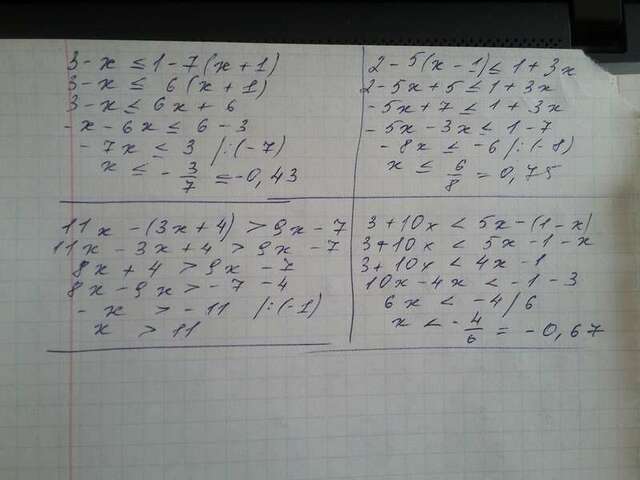 3 - x ≤ 1 - 7(x + 1)
3 - x ≤ 6(x + 1)
3 - x ≤ 6x + 6
-x - 6x ≤ 6 - 3
-7x ≤ 3 /:(-7)
x ≤ -3/7 = -0,43
2 - 5(x - 1) ≤ 1 + 3x
2 - 5x + 5 ≤ 1 + 3x
-5x + 7 ≤ 1 + 3x
-5x - 3x ≤ 1 - 7
-8x ≤ -6 /:(-8)
x ≤ 6/8 = 0,75
11x - (3x + 4) > 9x - 7
11x - 3x + 4 > 9x - 7
8x + 4 > 9x - 7
8x - 9x > -7 - 4
-x > -11 /:(-1)
x > 11
3 + 10x < 5x - (1 - x)
3 + 10x < 5x - 1 - x
3 + 10x < 4x - 1
10x - 4x < -1 - 3
6x < -4 / 6
x < -4/6 = -0,67